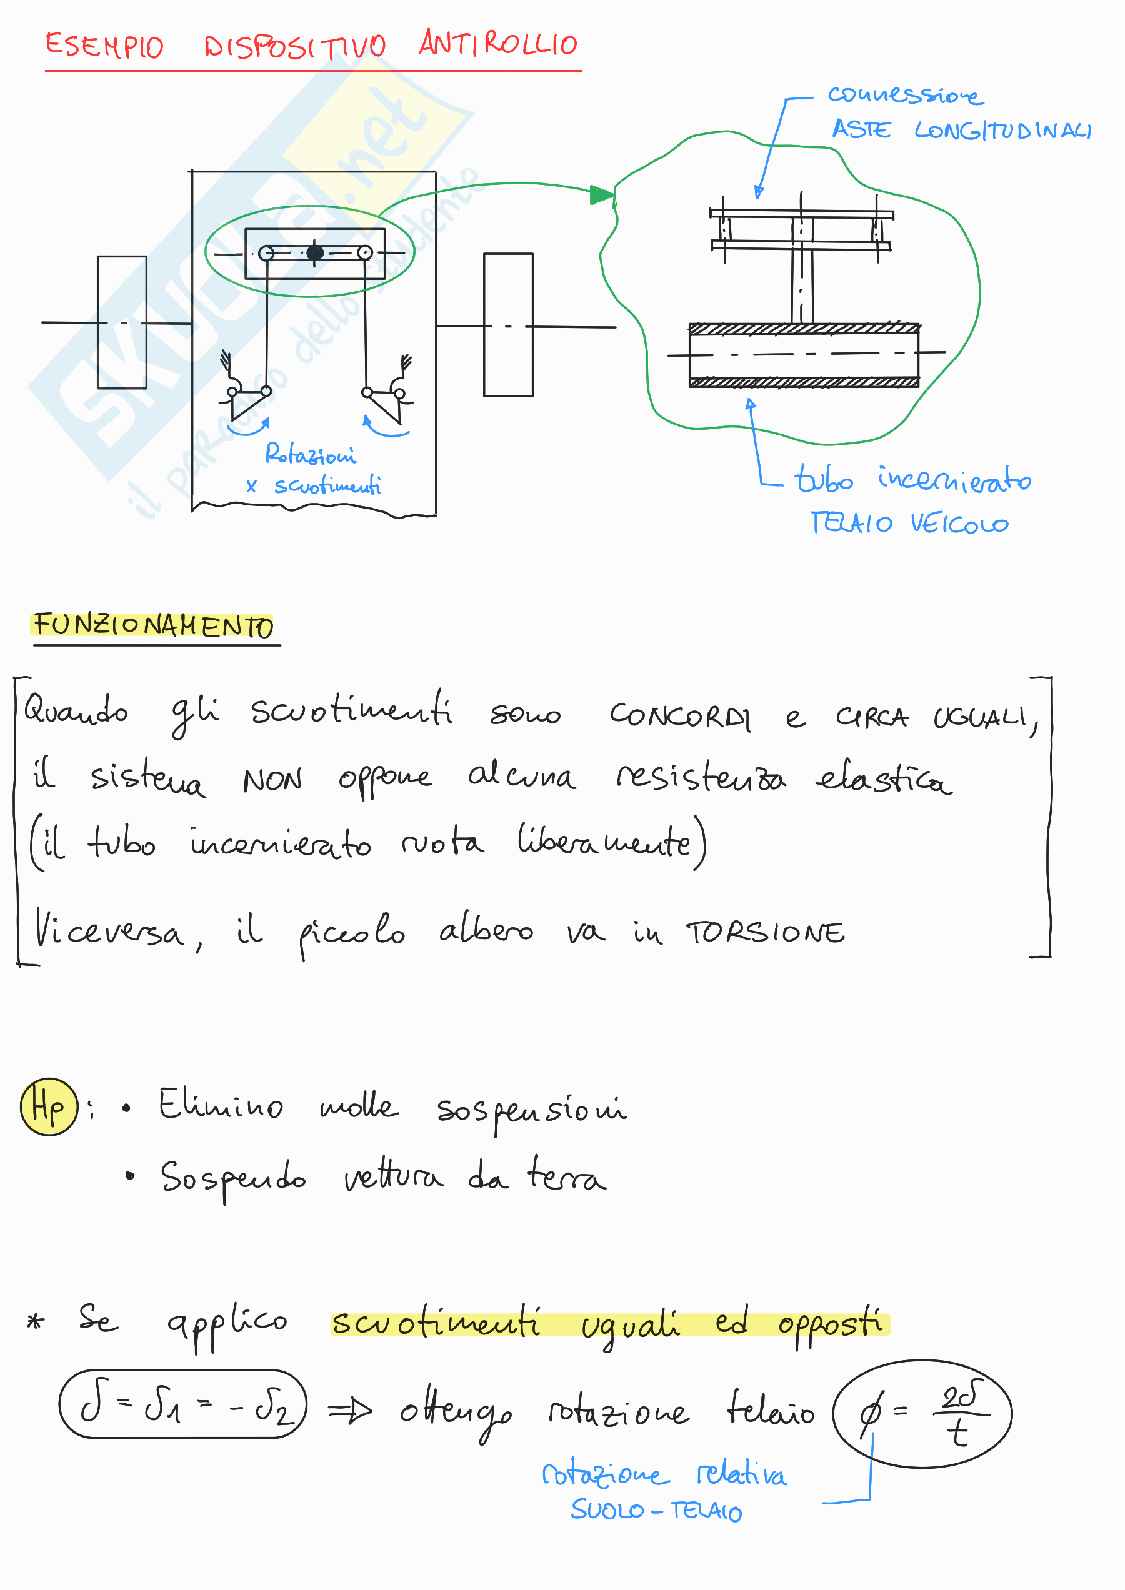 ESEMPIO DISPOSITIVO ANTIROLLIO
connessione
ASTE LONGITUDINALI
SKUOLA.net
il paradiso dello studente
Rotazioni
x scuotimenti
tubo incernierato
TELAIO VEICOLO
FUNZIONAMENTO
Quando gli scuotimenti sono CONCORDI e CIRCA UGUALI,
il sistema NON oppone alcuna resistenza elastica
(il tubo incernierato ruota liberamente)
Viceversa, il piccolo albero va in TORSIONE
Hp: • Elimino molle sospensioni
• Sospendo vettura da terra
* Se applico scuotimenti uguali ed opposti
δ = δ1 = - δ2 ⇒ ottengo rotazione telaio ϕ = 2δ/t
rotazione relativa
SUOLO - TELAIO